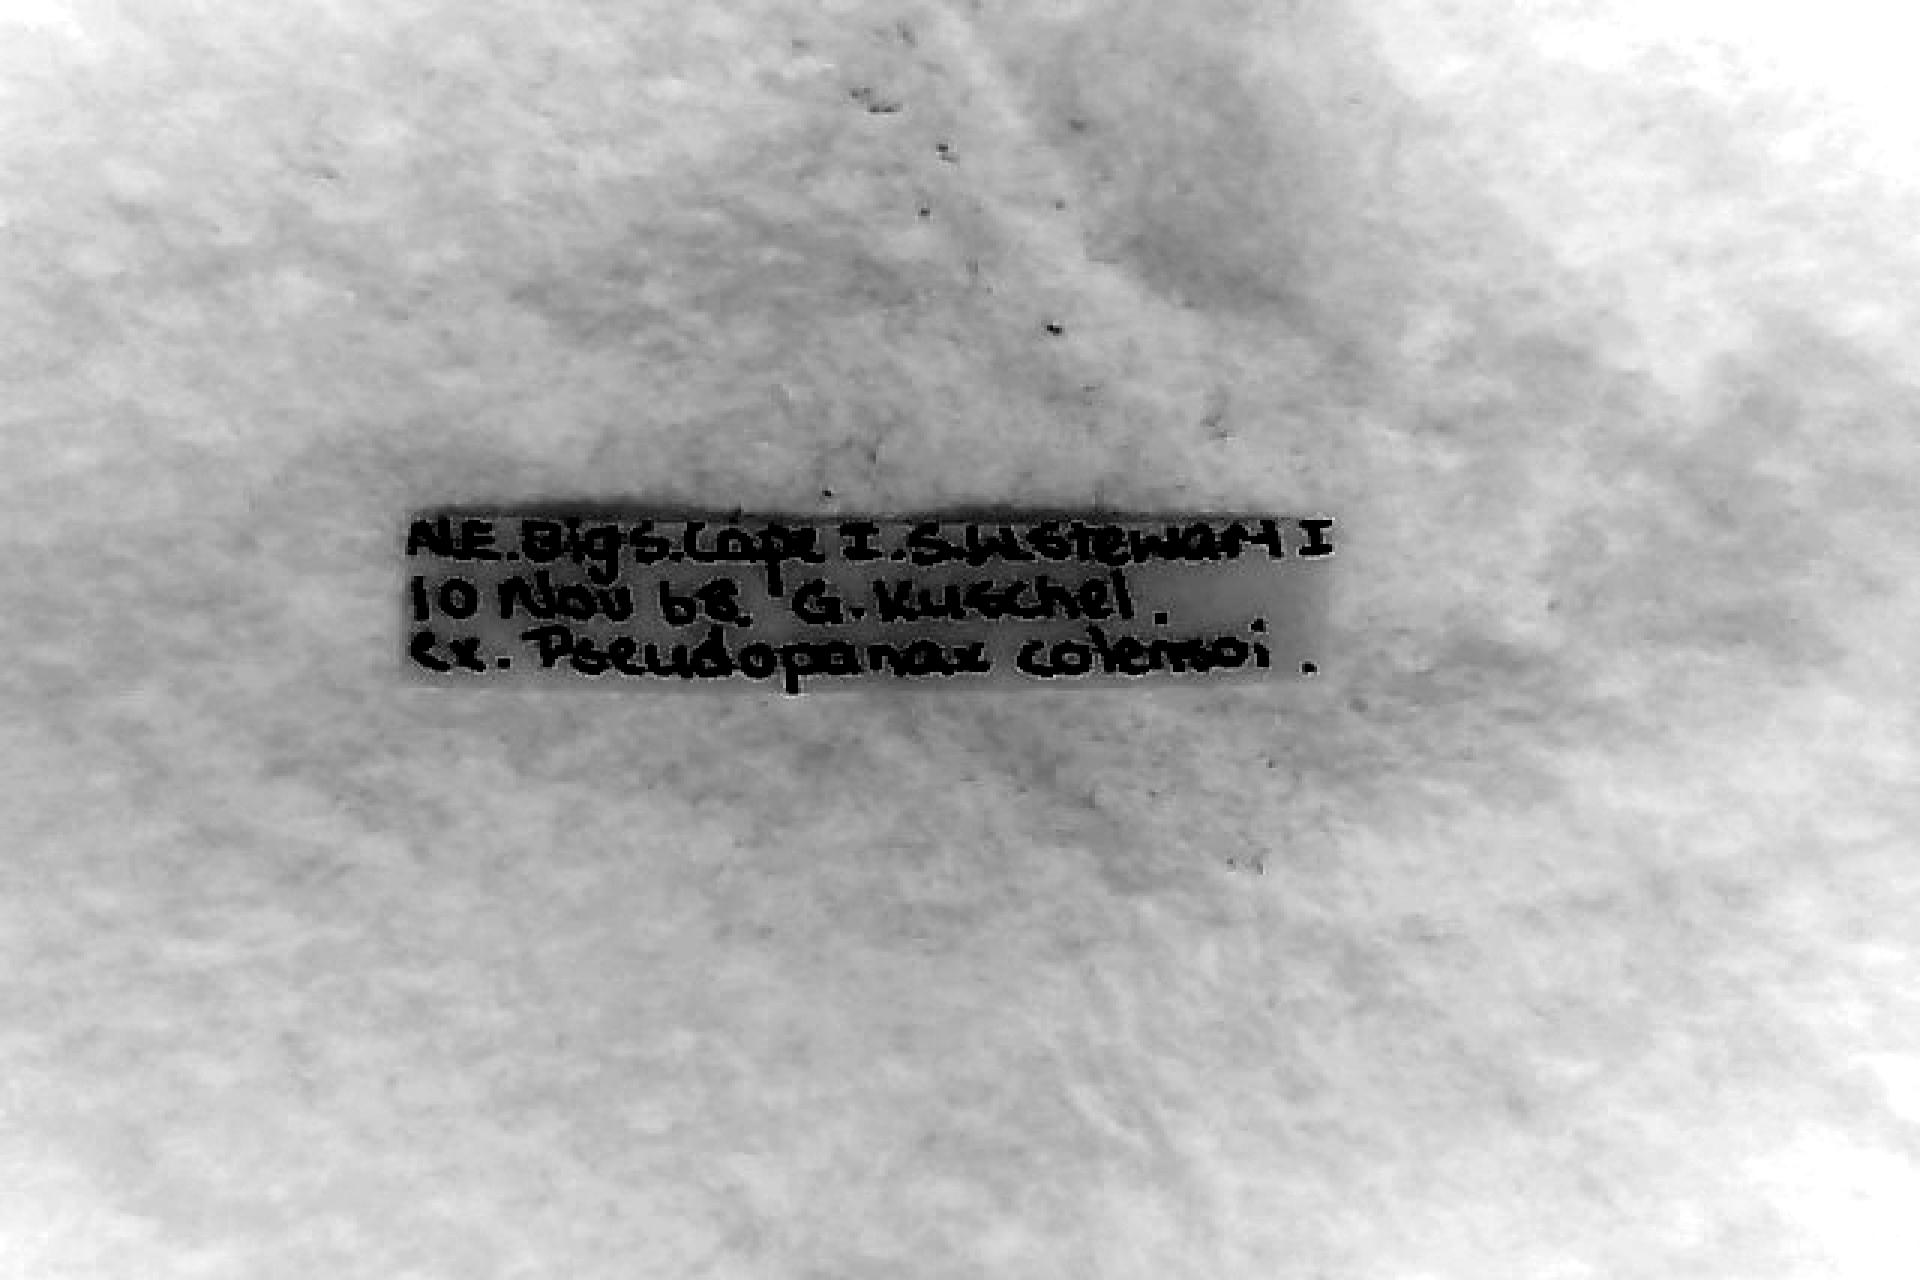 N.E. Big S. Cape I. S.W. Stewart I
10 Nov 68 G. Kuschel.
ex. Pseudopanax colensoi.